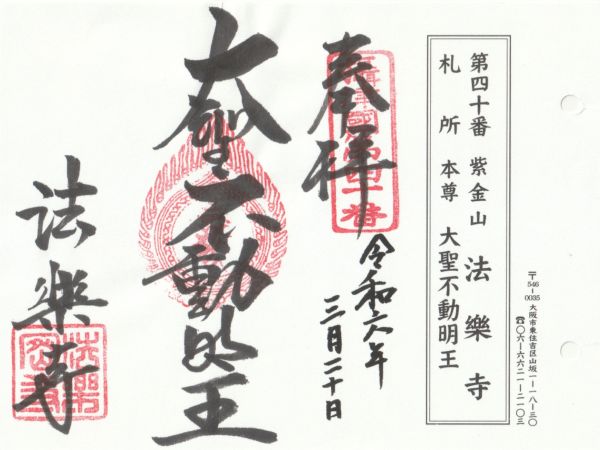 第四十番 紫金山 法樂寺
札所 本尊 大聖不動明王
〒546-0035 大阪市東住吉区山坂一-一八-三〇
☎〇六-六六二一-二一〇三
奉拝
令和六年
三月二十日
大聖不動明王
法樂寺